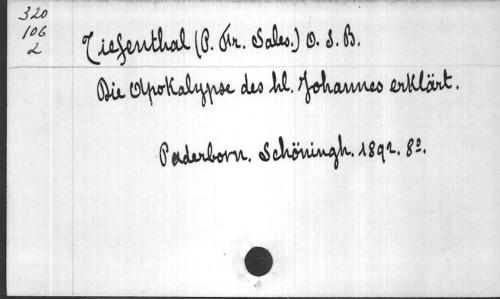 320
106
2
Tiefenthal (P. Fr. Sales.) O. S. B.
Die Apokalypse des hl. Johannes erklärt.
Paderborn. Schöningh. 1892. 8º.